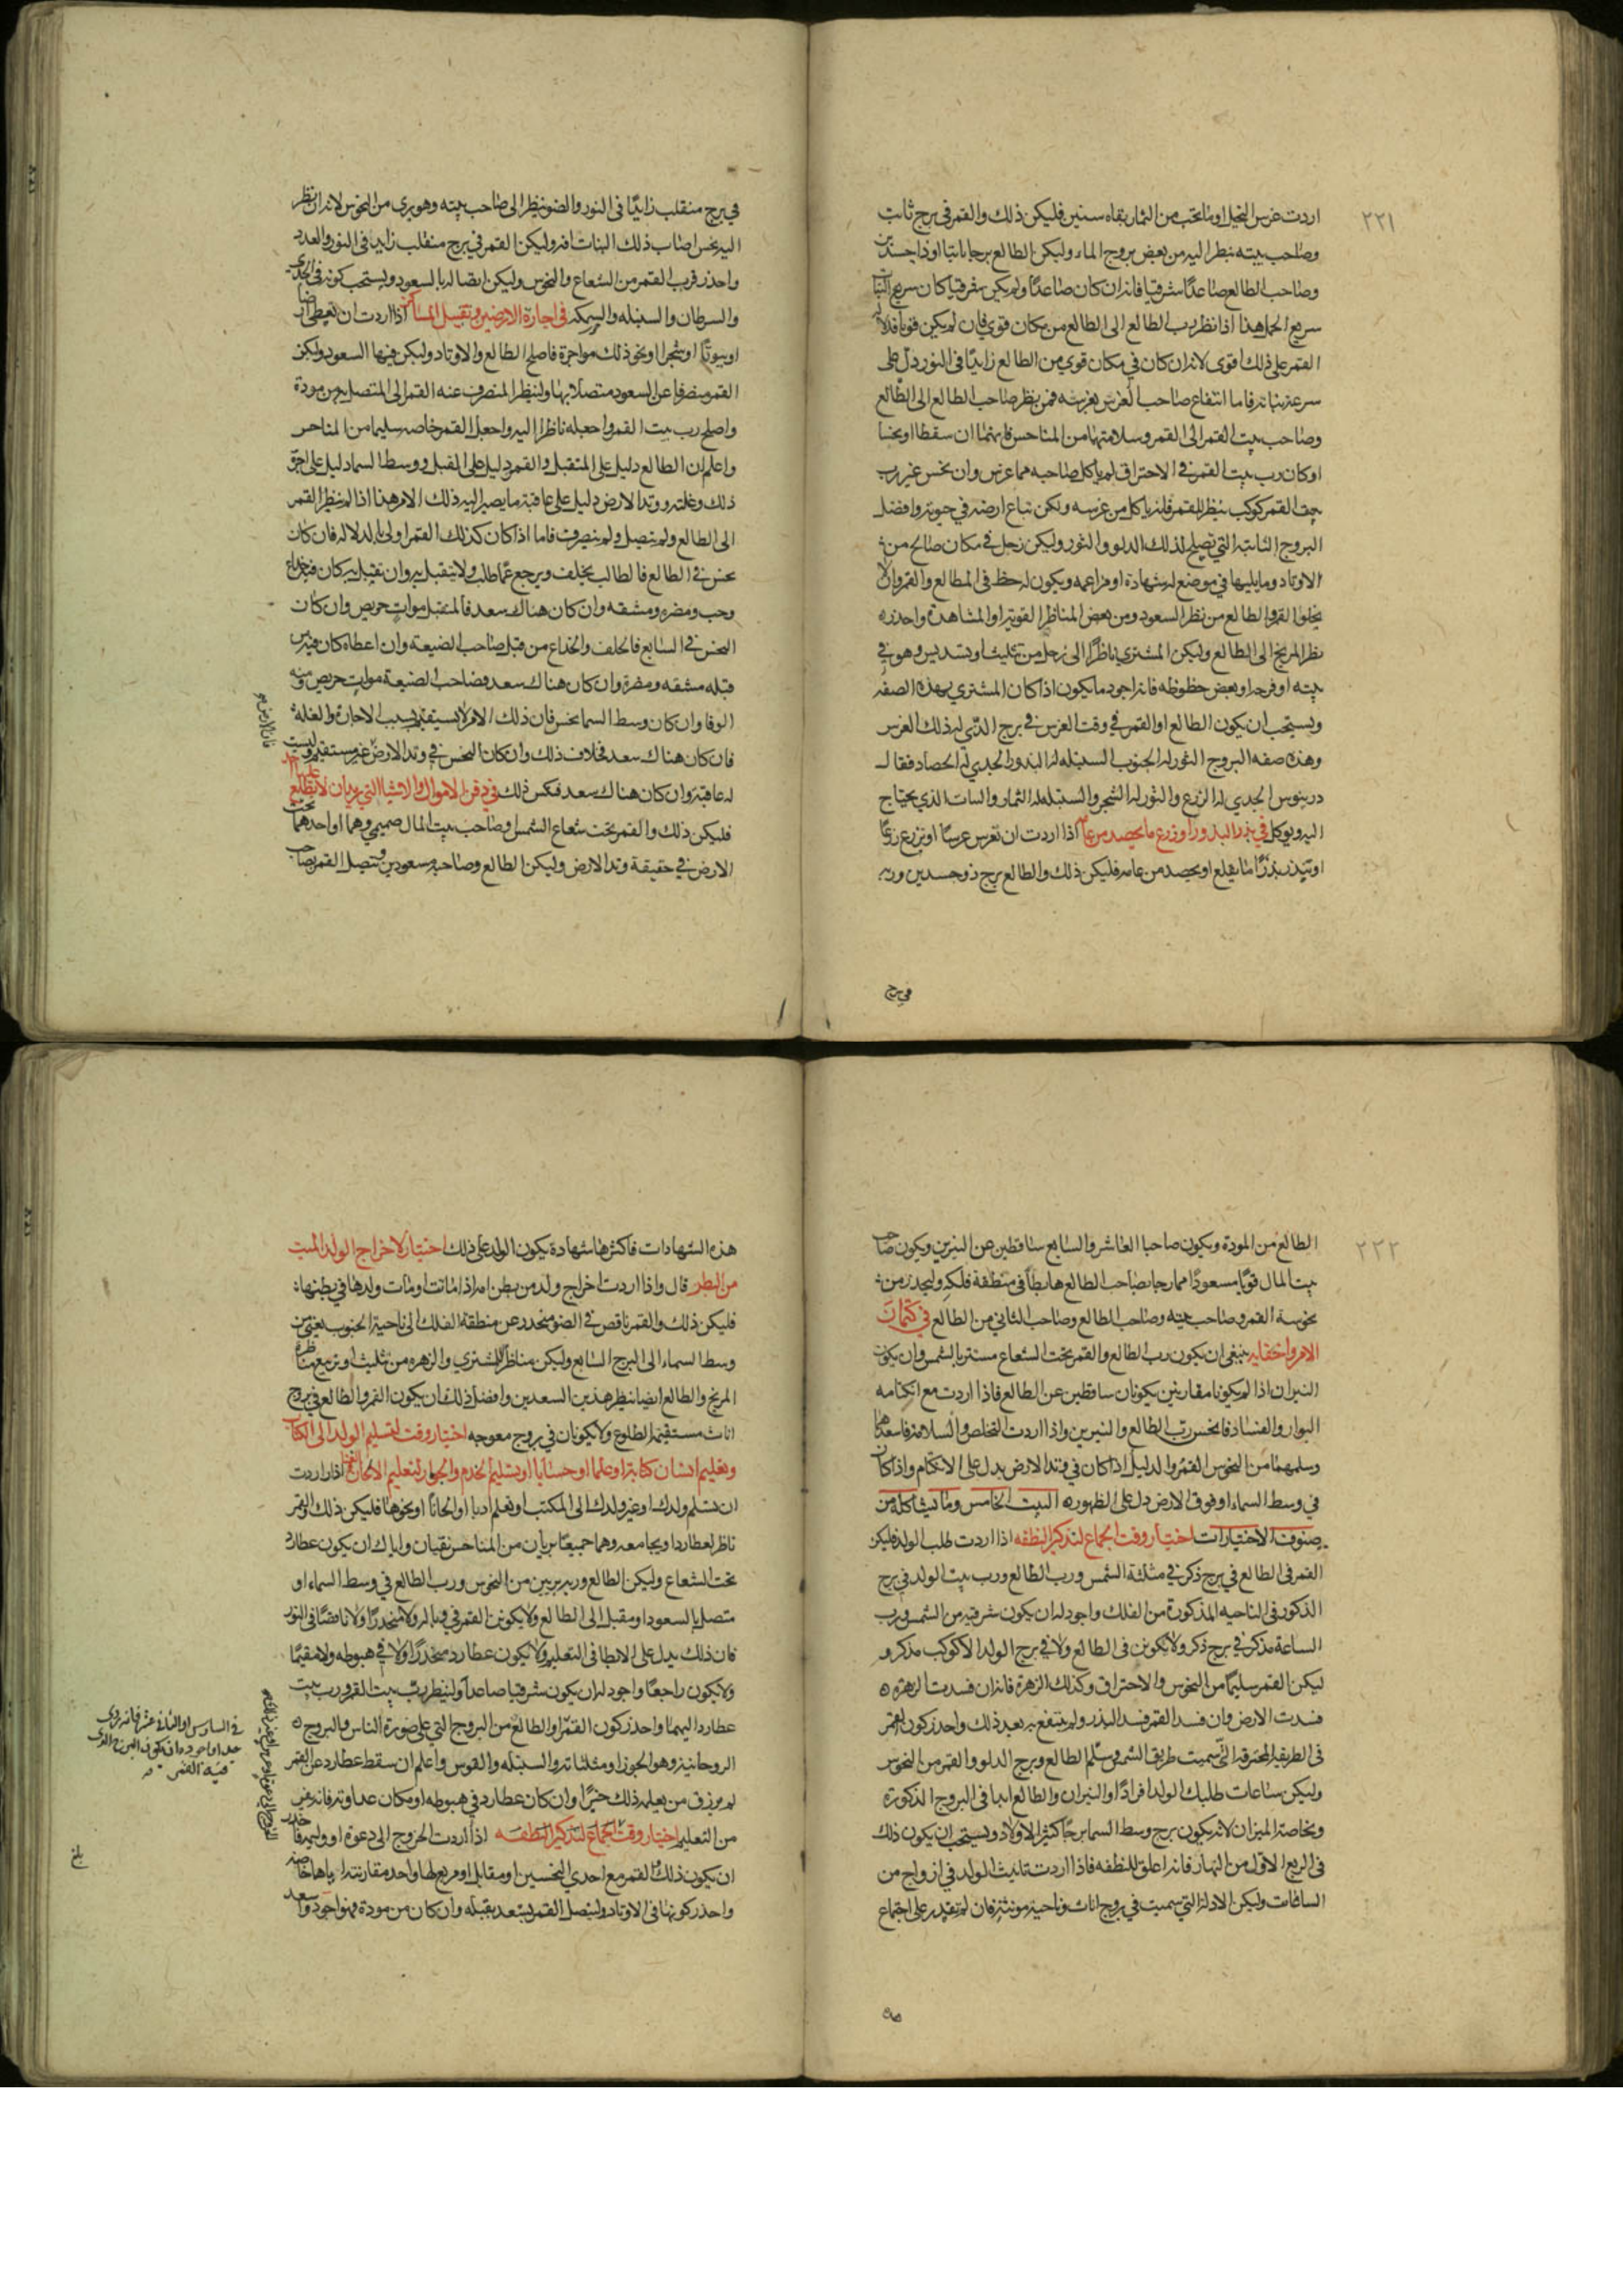 ٢٢١
اردت غرس النخل او ما تحب من الثمار بقاه سنين فليكن ذلك والقمر في برج ثابت
وصاحب بيته ينظر اليه من بعض بروج الماء وليكن الطالع برجا ثابتا او ذا جسدين
وصاحب الطالع صاعدًا شرقيا فانه ان كان صاعدًا ولم يكن شرقيا كان سريع النبات
سريع الحمل هذا اذا نظر رب الطالع الى الطالع من مكان قوي فان لم يكن قويا فدلالة
القمر على ذلك اقوى لانه ان كان في مكان قوي من الطالع زايدًا في النور دل على
سرعة نباته فاما انتفاع صاحب الغرس بغرسه فمن نظر صاحب الطالع الى الطالع
وصاحب بيت القمر الى القمر وسلامتهما من المناحس فانهما ان سقطا او نحسا
او كان رب بيت القمر في الاحتراق لم ياكل صاحبه مما غرس وان نحس غير رب
بيت القمر كوكب ينظر للقمر فلن ياكل من غرسه ولكن تباع ارضه في حيوته وافضل
البروج الثابتة التي تصلح لذلك الدلو والثور وليكن زحل في مكان صالح من
الاوتاد وما يليها في موضع له شهادة او مزاعمه ويكون له حظ في المطالع والقمر والا
يخلوا القمر والطالع من نظر السعود ومن بعض المناظر القوية او المشاهدة واحذره
نظر المريخ الى الطالع وليكن المشتري ناظرًا الى زحل من تثليث او تسديس وهو في
بيته او فرحه او بعض حظوظه فانه اجود ما يكون اذا كان المشتري بهذه الصفه
ويستحب ان يكون الطالع او القمر في وقت الغرس في برج الذي له ذلك الغرس
وهذه صفه البروج الثور له الجنوب السنبله لها البذور الجدي له الحصاد فقال
درينوس الجدي له الزرع والثور له الشجر والسنبله لها الثمار والنبات الذي يحتاج
اليه ويوكل في بذر البذور او زرع ما يحصد من عامه اذا اردت ان تغرس غرسًا او تزرع زرعًا
او تبذر بذرًا ما يقلع او يحصد من عامه فليكن ذلك والطالع برج ذو جسدين وربه
في برج
في برج منقلب زايدًا في النور والضو ينظر الى صاحب بيته وهو بري من النحوس لانه ان نظر
اليه نحس اصاب ذلك النبات افة وليكن القمر في برج منقلب زايدا في النور والعدد
واحذر قرب القمر من الشعاع والنحوس وليكن اتصاله بالسعود ويستحب كونه في الجدي
والسرطان والسنبله والسمكه في اجارة الارضين وتقبيل المساكن اذا اردت ان تعطي ارضا
او بيوتًا او شجرا او نحو ذلك مواجرة فاصلح الطالع والاوتاد وليكن فيها السعود وليكن
القمر منصرفا عن السعود متصلا بها ولينظر المنصرف عنه القمر الى المتصل به من مودة
واصلح رب بيت القمر واجعله ناظرا اليه واجعل القمر خاصه سليما من المناحس
واعلم ان الطالع دليل على المتقبل والقمر دليل على المقبل ووسط السما دليل على اجرة
ذلك وغلته ووتد الارض دليل على عاقبة ما يصير اليه ذلك الامر هذا اذا لم ينظر القمر
الى الطالع ولم يتصل ولم ينصرف فاما اذا كان كذلك القمر اولى بالدلاله فان كان
نحس في الطالع فالطالب يخلف ويرجع عما طلب ولا يتقبل به وان تقبل به كان فيه خداع
وحب ومضره ومشقه وان كان هناك سعد فالمتقبل موات حريص وان كان
النحس في السابع فالخلف والخداع من قبل صاحب الضيعه وان اعطاه كان فيه من
قبله مشقه ومضرة وان كان هناك سعد فصاحب الضيعة موات حريص ومنه
الوفا وان كان وسط السما نحس فان ذلك الامر لا يستقيم بسبب الاجارة والغلة
فان كان هناك سعد فخلاف ذلك وان كان النحس في وتد الارض غير مستقيم وليست
له عاقبة وان كان هناك سعد فعكس ذلك في دفن الاموال والاشيا التي يريد ان لا يطلع عليها احد
فليكن ذلك والقمر تحت شعاع الشمس وصاحب بيت المال صميمي وهما او احدهما تحت
الارض في حقيقة وتد الارض وليكن الطالع وصاحبه مسعودين ويتصل القمر بصاحب
٢٢٢
الطالع من المودة ويكون صاحبا العاشر والسابع ساقطين عن النيرين ويكون صاحب
بيت المال قويًا مسعودًا ممازجا بصاحب الطالع هابطًا في منطقة فلكه وليحذر من
نحوسة القمر وصاحب بيته وصاحب الطالع وصاحب الثاني من الطالع في كتمان
الامر واخفايه ينبغي ان يكون رب الطالع والقمر تحت الشعاع مستتر بالشمس وان يكون
النيران اذا لم يكونا مقارنين يكونان ساقطين عن الطالع فاذا اردت مع انكتامه
البوار والفساد فانحس رب الطالع والنيرين واذا اردت التخلص والسلامة فاسعدهما
وسلمهما من النحوس القمر والدليل اذا كان في وتد الارض يدل على الانكتام واذا كان
في وسط السماء او فوق الارض دل على الظهور البيت الخامس وما يشاكله من
صنوف الاختيارات اختيار وقت الجماع لتذكير النطفه اذا اردت طلب الولد فليكن
القمر في الطالع في برج ذكر في مثلثة الشمس ورب الطالع ورب بيت الولد في برج
الذكور في الناحيه المذكورة من الفلك واجود له ان يكون شرقيه من الشمس ورب
الساعة مذكر في برج ذكر ولا يكونن في الطالع ولا في برج الولد الا كوكب مذكر و
ليكن القمر سليمًا من النحوس والاحتراق وكذلك الزهرة فانه ان فسدت الزهره
فسدت الارض وان فسد القمر فسد البذر ولم ينتفع به بعد ذلك واحذر كون القمر
في الطريقه المحترقه التي سميت طريق الشمس وسلم الطالع وبرج الدلو والقمر من النحوس
وليكن ساعات طلبك الولد افرادًا والنيران والطالع ايضا في البروج المذكورة
وبخاصة الميزان لانه يكون برج وسط السما برجًا كثير الاولاد ويستحب ان يكون ذلك
في الربع الاول من النهار فانه اعلق للنطفه فاذا اردت تانيث الولد في ازواج من
الساعات وليكن الادلة التي سميت في بروج اناث وناحية مونثة فان لم تقدر على اجتماع
هذه
هذه الشهادات فاكثرها شهادة يكون الولد على ذلك اختيار لاخراج الولد الميت
من البطن قال واذا اردت اخراج ولد من بطن امه اذا ماتت او مات ولدها في بطنها
فليكن ذلك والقمر ناقص في الضو منحدر عن منطقة الفلك الى ناحية الجنوب يعني من
وسط السماء الى البرج السابع وليكن مناظر المشتري والزهره من تثليث او تربيع مناظرة
المريخ والطالع ايضا ينظر هذين السعدين وافضل ذلك ان يكون القمر والطالع في بروج
اناث مستقيمة الطلوع ولا يكونان في بروج معوجه اختيار وقت لتسليم الولد الى الكتاب
وتعليم انسان كتابة او علما او حسابا او تسليم الخدم والجوار لتعليم الالحان اذا اردت
ان تسلم ولدك او غير ولدك الى المكتب او تعلم ادبا او الحانًا او نحوها فليكن ذلك والقمر
ناظر لعطارد او يجامعه وهما جميعًا بريان من المناحس نقيان واياك ان يكون عطارد
تحت الشعاع وليكن الطالع وربه بريين من النحوس ورب الطالع في وسط السماء او
متصل بالسعود او مقبل الى الطالع ولا يكونن القمر في وباله ولا منحدرًا ولا ناقصًا في النور
فان ذلك يدل على الابطا في التعليم ولا يكون عطارد منحدرًا ولا في هبوطه ولا مقيمًا
ولا يكون راجعًا واجود له ان يكون شرقيا صاعدًا ولينظر رب بيت القمر ورب بيت
عطارد اليهما واحذر كون القمر او الطالع من البروج التي على صورة الناس والبروج
الروحانية وهو الجوزا ومثلثاته والسنبله والقوس واعلم ان سقط عطارد عن القمر
لم يرزق من يعلمه ذلك خيرًا وان كان عطارد في هبوطه او مكان عداوته فانه
من التعليم اختيار وقت الجماع لتذكير النطفه اذا اردت الخروج الى دعوة او وليمة فاحذر
ان يكون ذلك والقمر مع احدي النحسين او مقابله او مربعها واحد مقارنته اياها خاصه
واحذر كونها في الاوتاد وليتصل القمر بسعد يقبله وان كان من مودة فهو اجود واسعد
في السادس او الثاني عشر فانه ردى
جدا واجوده ان يكون البرج الذى
فيه القمر
بلغ